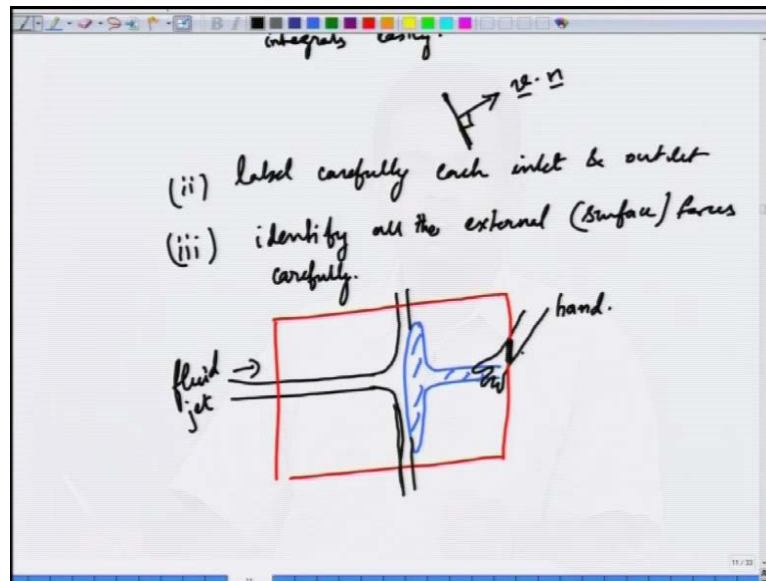 integrals easily.
v · n
(ii) label carefully each inlet & outlet
(iii) identify all the external (surface) forces
carefully.
hand.
fluid
jet
11 / 33